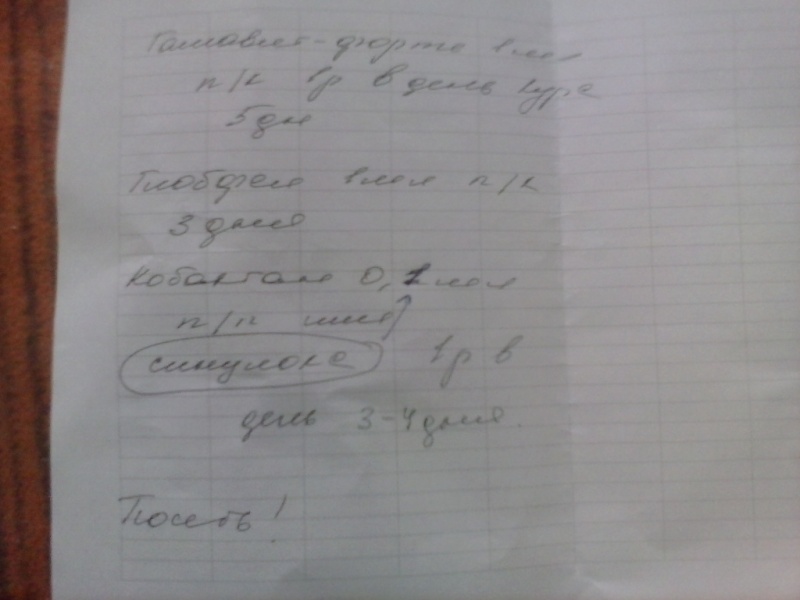 Гамавит-форте 1 мл
п/к 1р в день курс
5 дн
Глобфел 1 мл п/к
3 дня
Кобактан 0,1 мл
п/к или
синулокс 1р в
день 3-4 дня.
Поить!